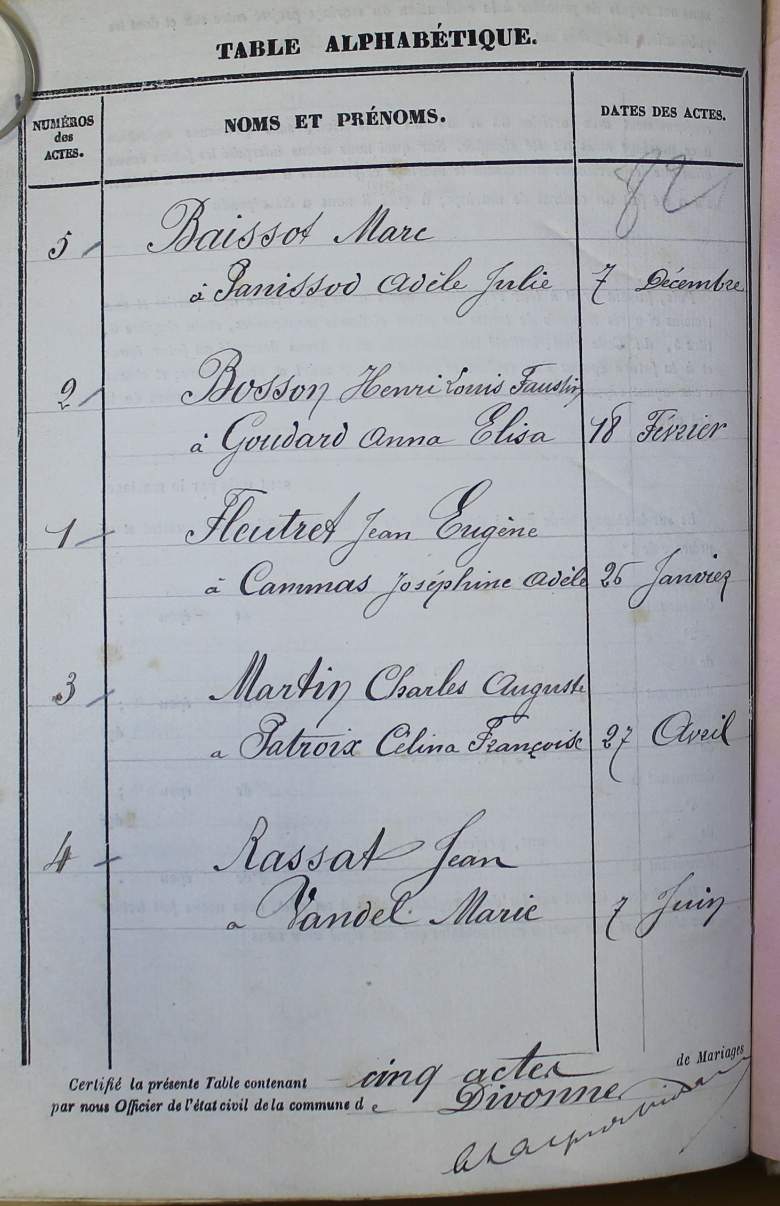 TABLE ALPHABÉTIQUE.
NUMÉROS des ACTES. NOMS ET PRÉNOMS. DATES DES ACTES.
82
5 Baissot Marc
à Panissod Adèle Julie 7 Décembre
2 Bosson Henri Louis Faustin
à Goudard Anna Elisa 18 Février
1 Fleutret Jean Eugène
à Cammas Joséphine Adèle 26 Janvier
3 Martin Charles Auguste
a Patroix Célina Françoise 27 Avril
4 Rassat Jean
a Vandel Marie 7 Juin
Certifié la présente Table contenant cinq actes de Mariages
par nous Officier de l'état civil de la commune de Divonne